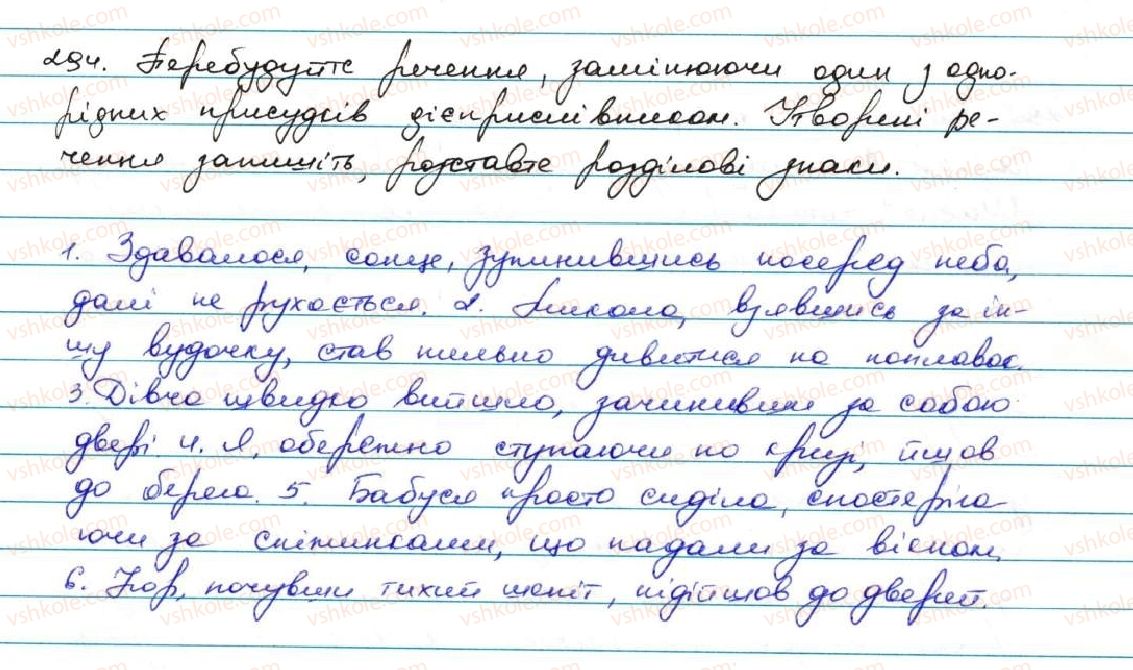 294. Перебудуйте речення, замінюючи один з одно-
рідних присудків дієприслівником. Утворені ре-
чення запишіть, розставте розділові знаки.
1. Здавалося, сонце, зупинившись посеред неба,
далі не рухається. 2. Микола, взявшись за ін-
шу вудочку, став пильно дивитися на поплавок.
3. Дівча швидко вийшло, зачинивши за собою
двері. 4. Я, обережно ступаючи по кризі, йшов
до берега. 5. Бабуся просто сиділа, спостеріга
ючи за сніжинками, що падали за вікном.
6. Ігор, почувши тихий шепіт, підійшов до дверей.